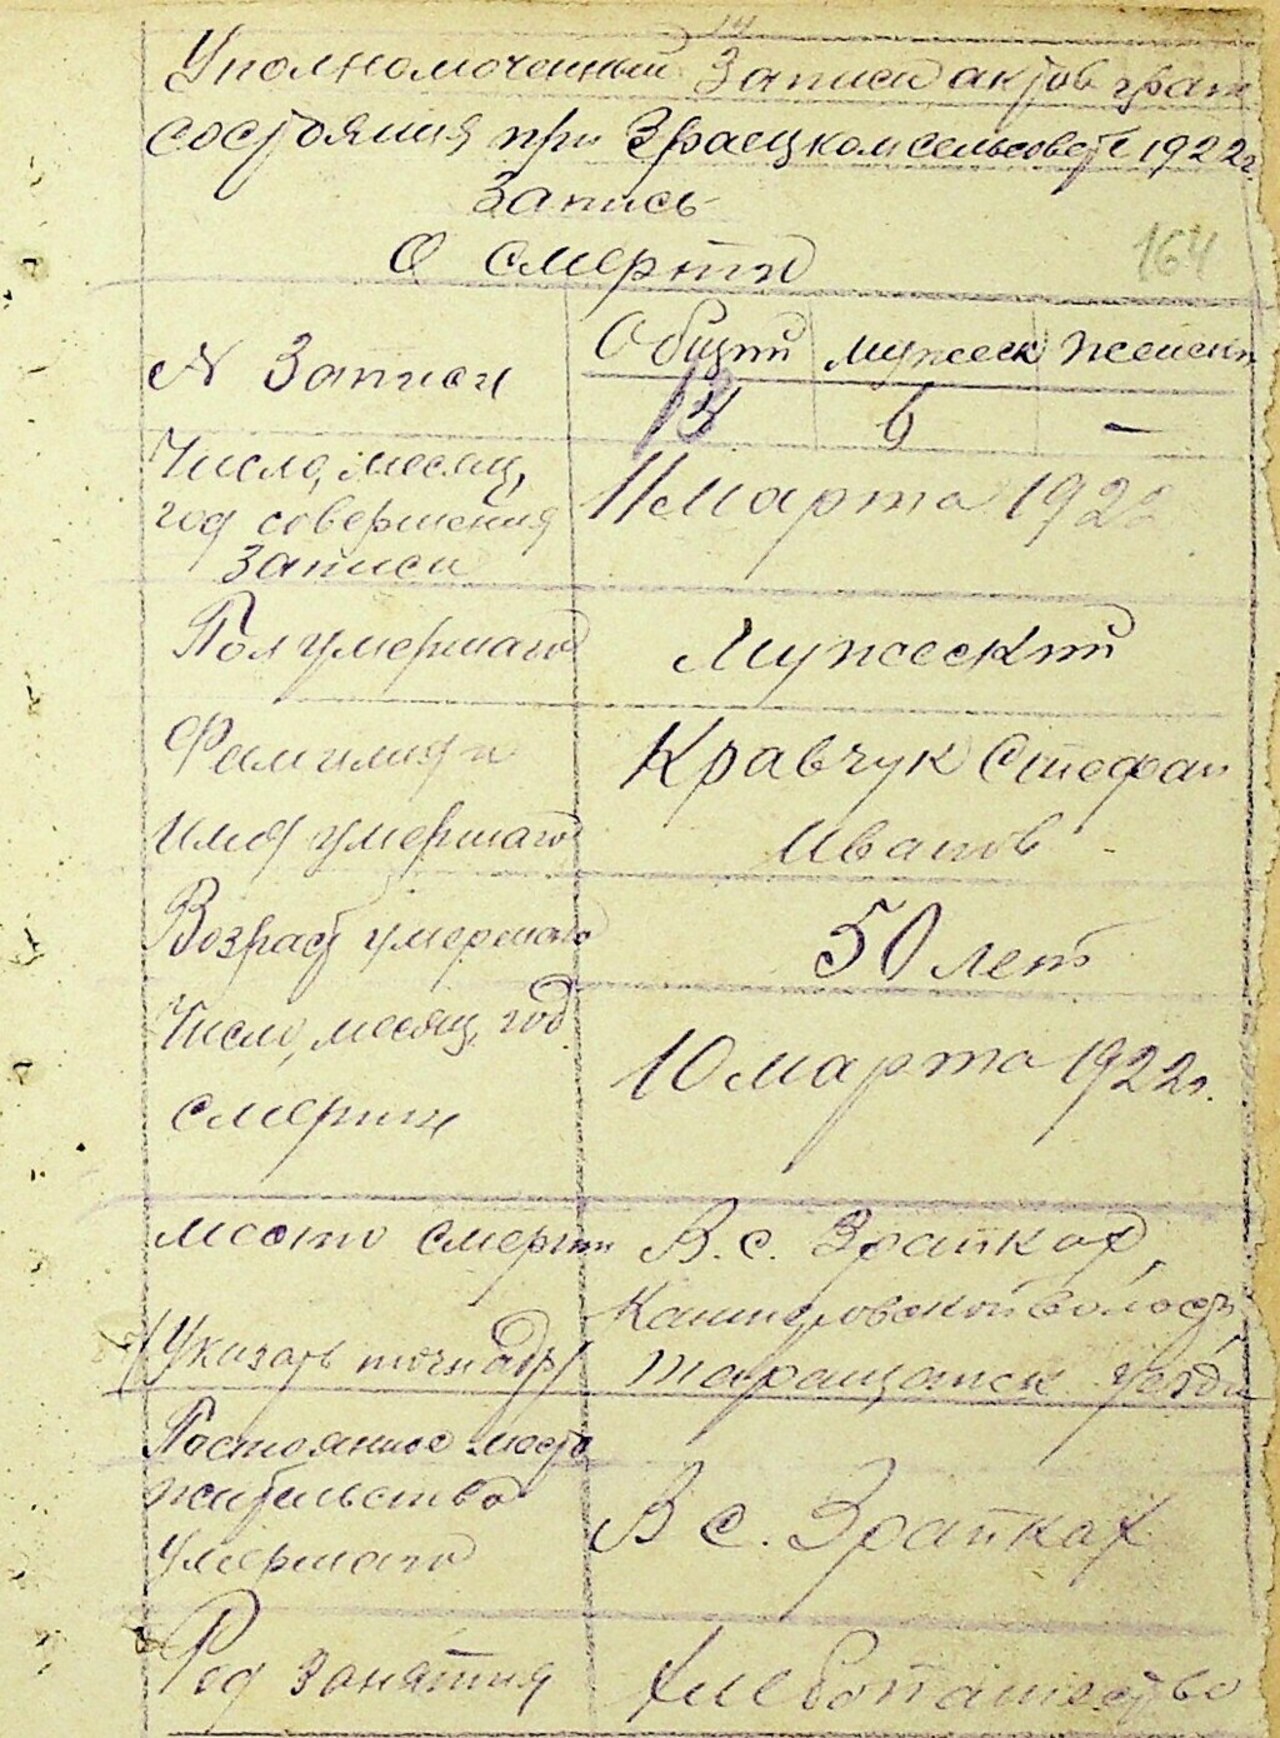 Уполномоченный Записи актов граж
состояния при Зраецком сельсовете 1922 г.
Запись
О смерти
164
N Записи
Общий мужеск женск
13 6 —
Число, месяц,
год совершения
записи
11 Марта 1922
Пол умершаго
Мужеский
Фамилия и
имя умершаго
Кравчук Стефан
Иванов
Возраст умершаго
50 лет
Число, месяц, год
смерти
10 марта 1922 г.
место смерти
/Указать точн адр/
В. с. Зрайках,
волост
Таращанск уезда
Постоянное место
жительство
умершаго
В с. Зрайках
Род занятия
Хлебопашество